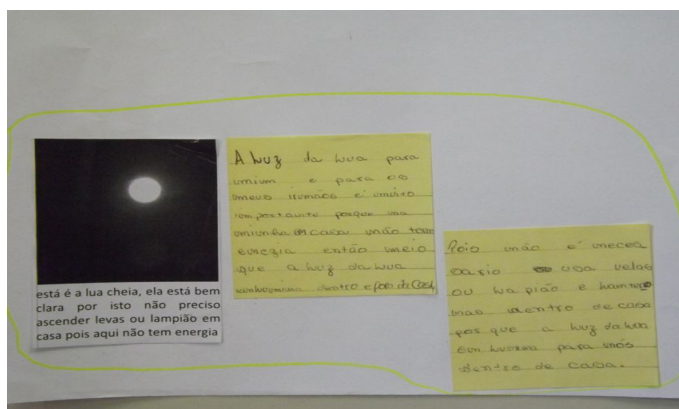 está é a lua cheia, ela está bem
clara por isto não preciso
ascender levas ou lampião em
casa pois aqui não tem energia
A Luz da Lua para
mium e para os
meus irmãos é muito
importante porque na
minha casa não tem
energia então
que a luz da lua
dentro e fora da Casa,
Pois não é
usa velas
ou
dentro de casa
por que a luz da lua
para nós
dentro de casa.